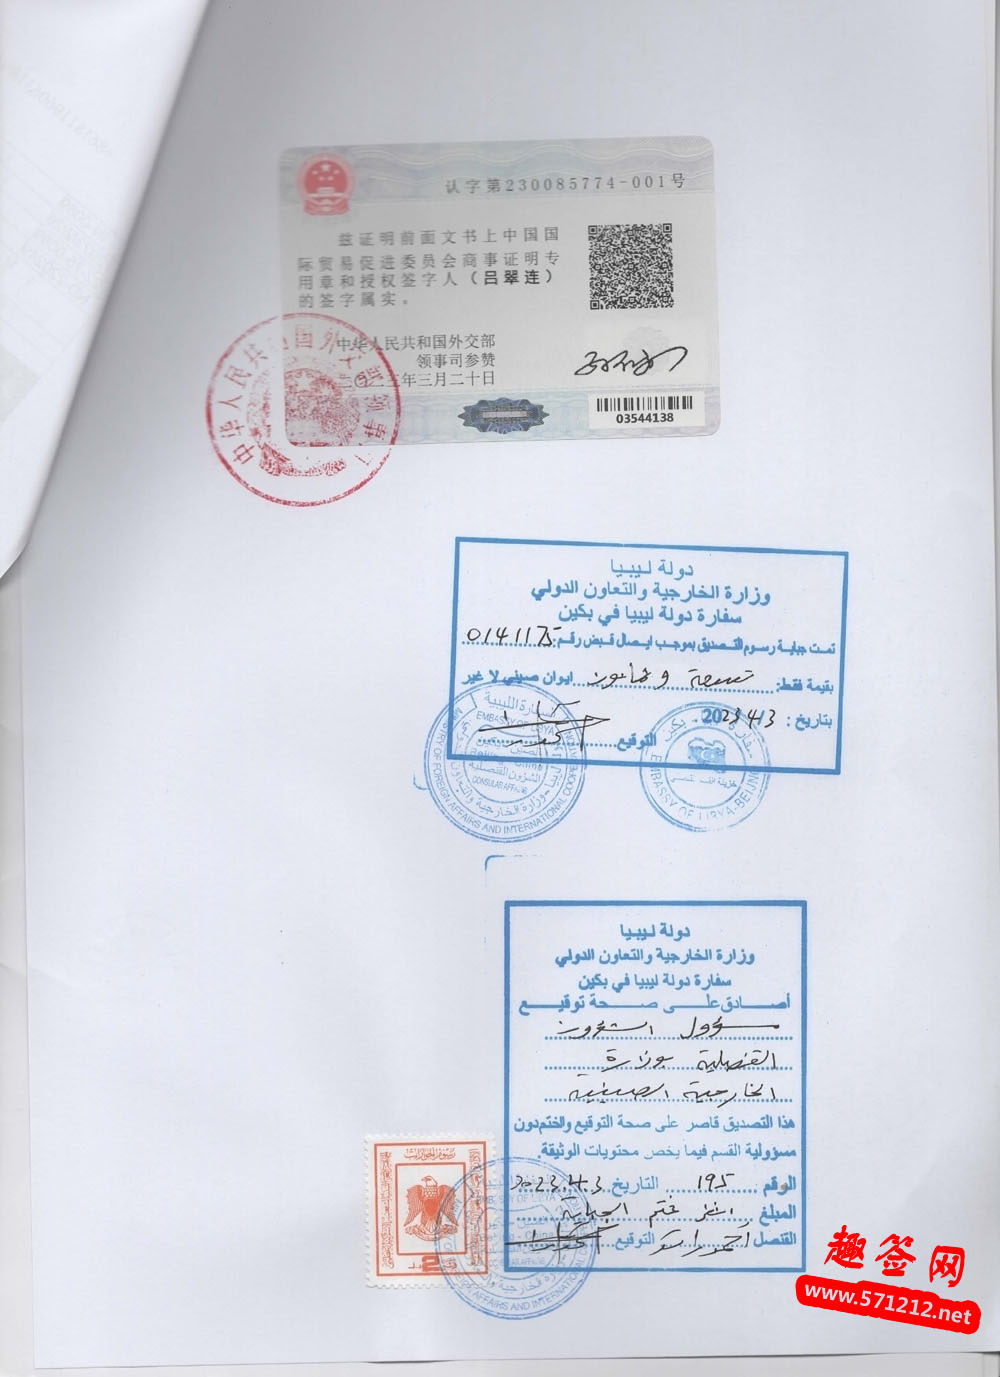 认字第230085774-001号
兹证明前面文书上中国国
际贸易促进委员会商事证明专
用章和授权签字人（吕翠连）
的签字属实。
中华人民共和国外交部
领事司参赞
二〇二三年三月二十日
03544138
中华人民共和国外交部领事司
دولة ليبيا
وزارة الخارجية والتعاون الدولي
سفارة دولة ليبيا في بكين
تمت جباية رسوم التصديق بموجب ايصال قبض رقم: 0141175
بقيمة فقط: تسعة و ثمانون ايوان صيني لا غير
بتاريخ : 2023 4/3
التوقيع
السفارة الليبية
EMBASSY OF LIBYA
Beijing - China
الشؤون القنصلية
CONSULAR AFFAIRS
MINISTRY OF FOREIGN AFFAIRS AND INTERNATIONAL COOPERATION
EMBASSY OF LIBYA-BEIJING
دولة ليبيا
وزارة الخارجية والتعاون الدولي
سفارة دولة ليبيا في بكين
أصادق على صحة توقيع
مسؤول الشؤون
القنصلية بوزارة
الخارجية الصينية
هذا التصديق قاصر على صحة التوقيع والختم دون
مسؤولية القسم فيما يخص محتويات الوثيقة.
الوقم 195 التاريخ 2023.4.3
المبلغ انظر ختم الجباية
القنصل التوقيع
2
AFFAIRS AND INTERNATIONAL
趣签网
www.571212.net